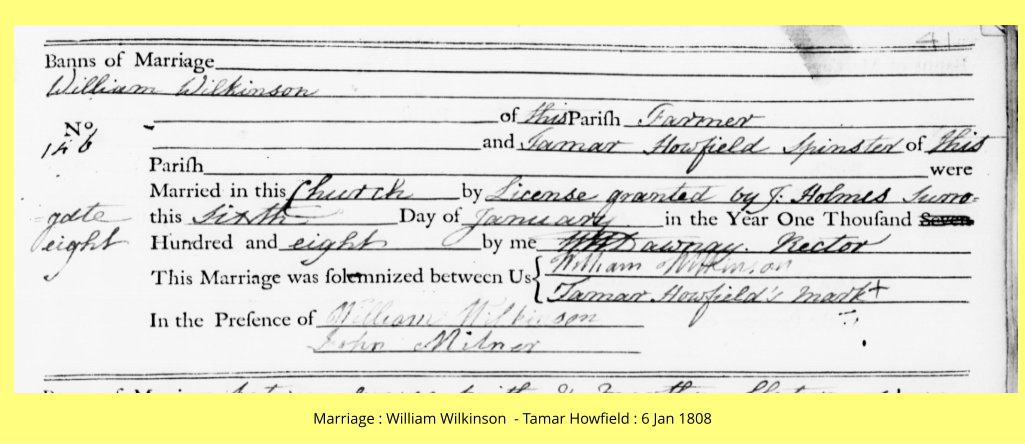 41
Banns of Marriage
William Wilkinson
of this Pariſh Farmer
No
146
and Tamar Howfield Spinster of this
Pariſh were
Married in this Church by License granted by J. Holmes Surro-
gate this Sixth Day of January in the Year One Thouſand Seven
eight Hundred and eight by me Dawnay. Rector
This Marriage was ſolemnized between Us William Wilkinson
Tamar Howfield's mark +
In the Preſence of William Wilkinson
John Milner
Marriage : William Wilkinson - Tamar Howfield : 6 Jan 1808